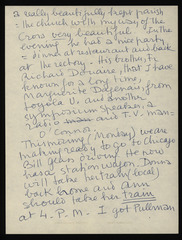 a really beautifully kept parish
the church with my way of the
Cross very beautiful. In the
evening he had a nice party
dinner at restaurant and back
at the rectory. His brother, fr.
Richard Dorciane, that I have
known for a long time,
Marguerite Dajenais, from
Loyola U. and another
symposium speaker, a
radio man and T.V. man-
O'Connor.
This morning (Monday) we are
making ready to go to Chicago
Bill Glenn driver. He now
has a station wagon. Donis
will take her train (local)
back home and Ann
should take her train
at 4. P.M. I got Pullman